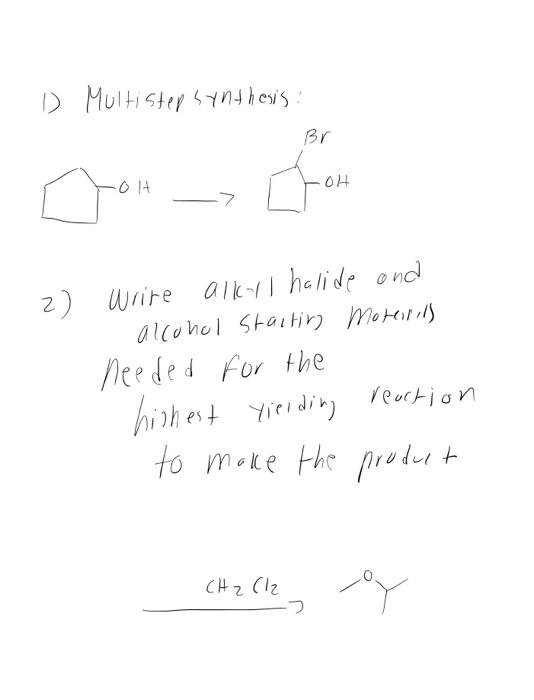 1) Multistep synthesis:
Br
OH
OH
2) Write alkyl halide and
alcohol starting materials
needed for the
highest yielding reaction
to make the product
CH2Cl2
O